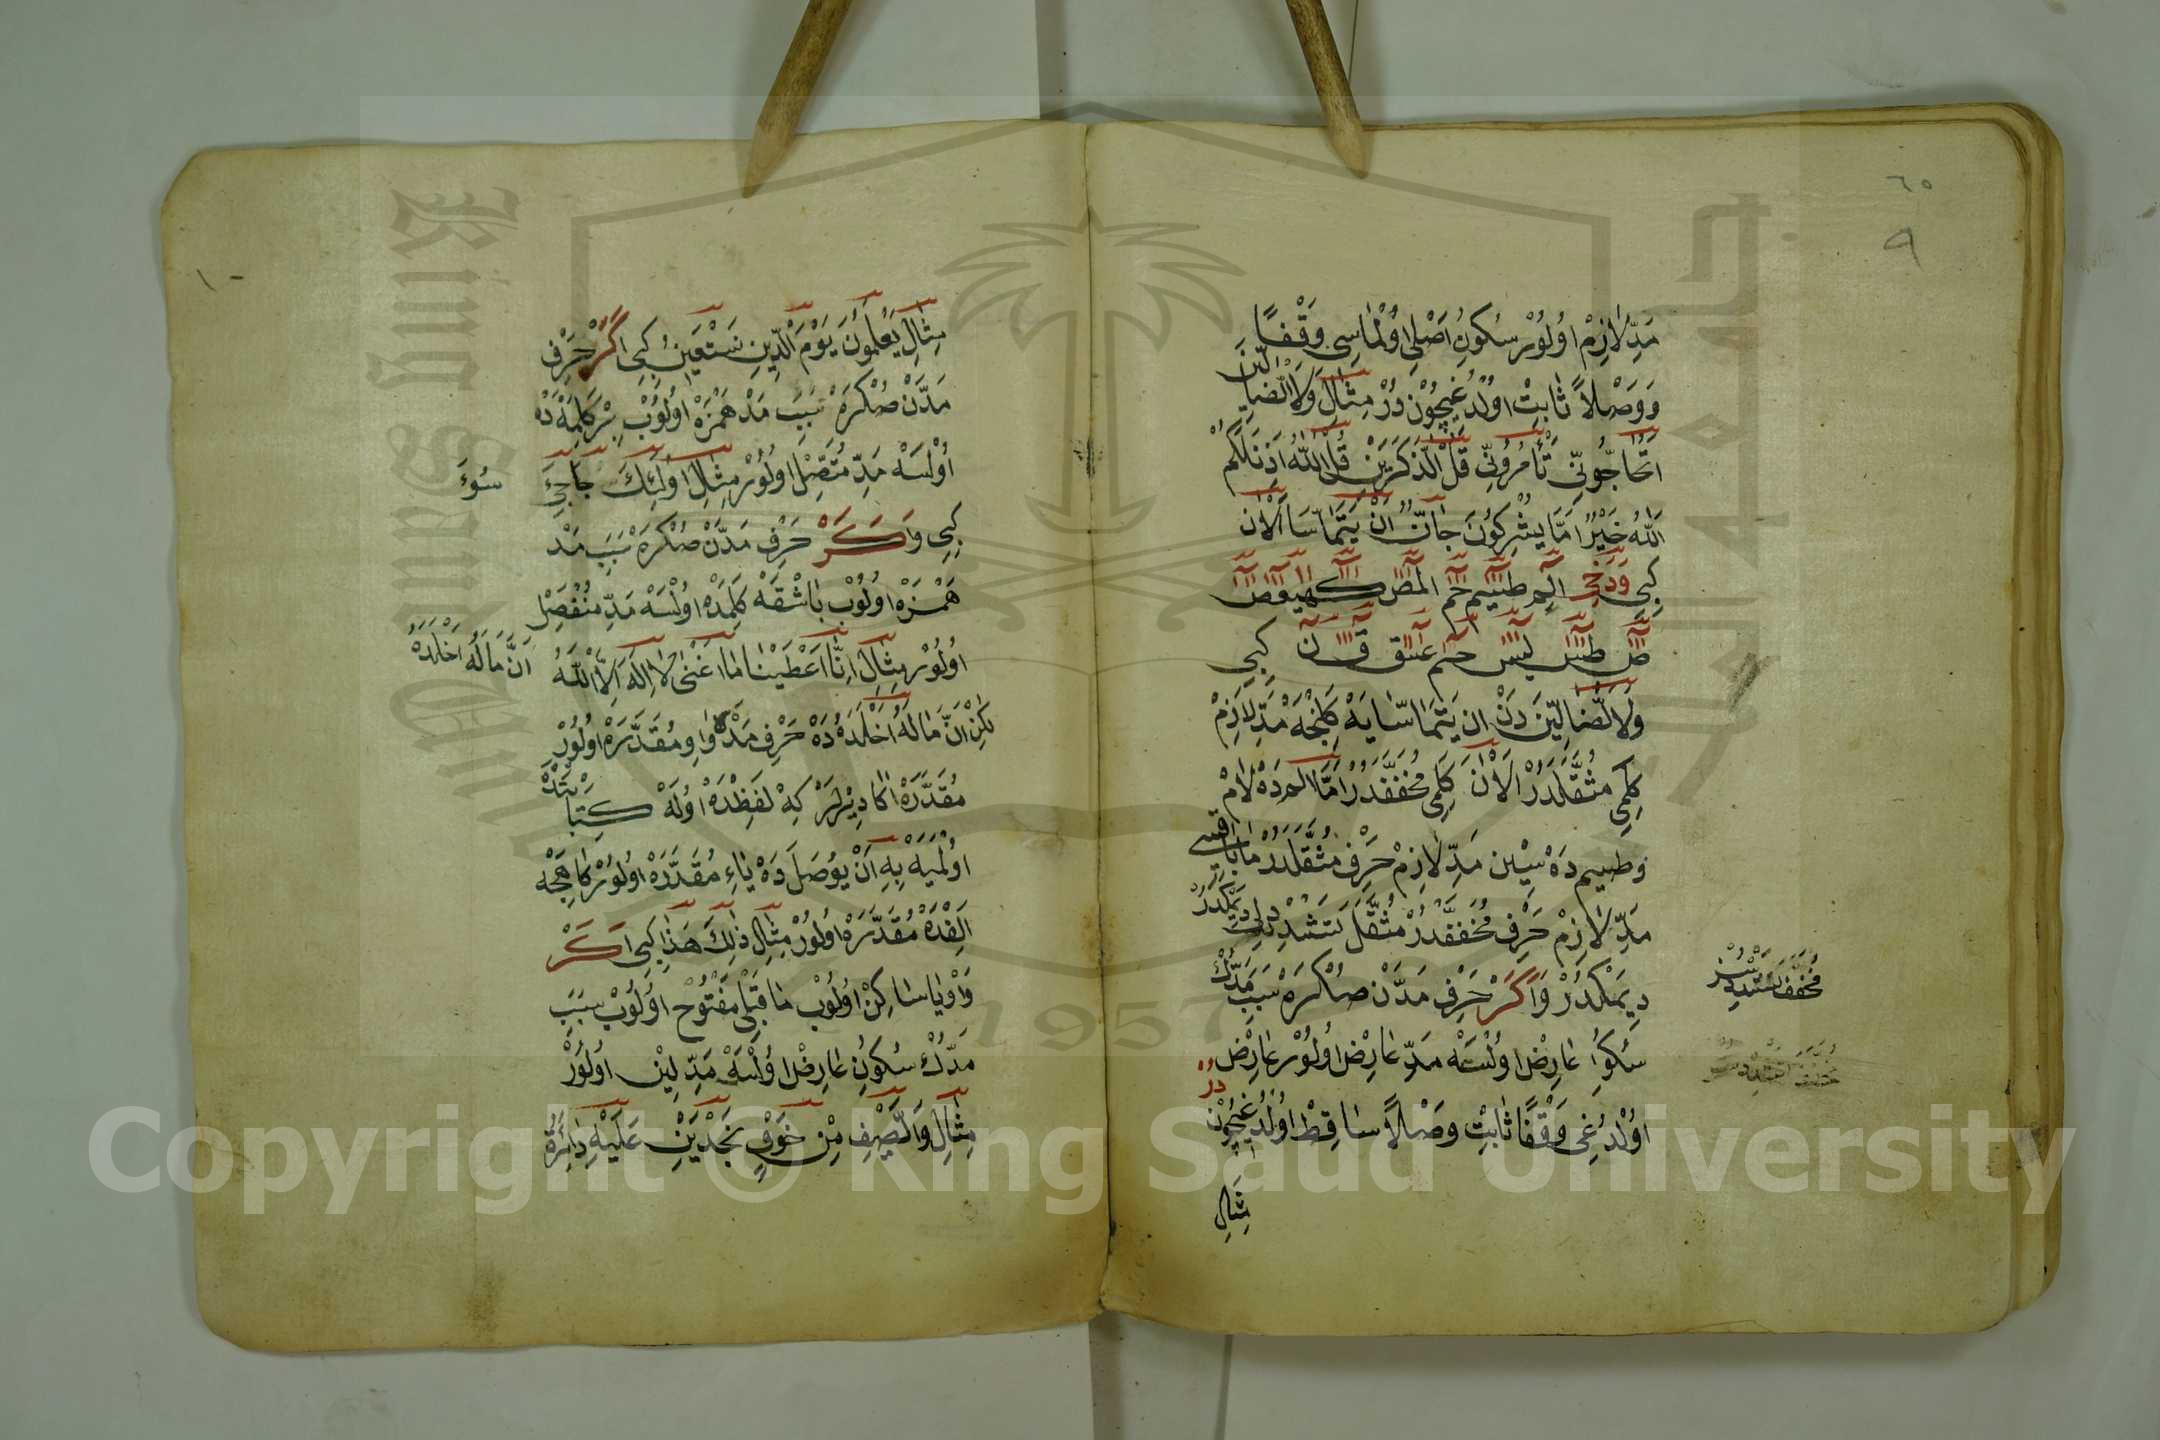 ٦٥
٩
مَدِّ لَازِمْ اُولُورْ سُكُونِ اَصْلِى اُولْمَاسِى وَقْفًا
وَوَصْلاً ثَابِتْ اُولْدُغِيچُوْن دُرْ مِثَالَ وَلَا الضَّالِّينَ
اَتُحَاجُّونِّى تَأْمُرُونِّى قُلْ آلذَّكَرَيْنِ قُلْ آللّٰهُ اَذِنَ لَكُمْ
آللّٰهُ خَيْرٌ اَمَّا يُشْرِكُونَ جَانٌّ اَنْ يَتَمَاسَّا آلْاٰنَ
كِبِى وَدَخِى الٓمٓ طسٓمٓ حٰمٓ الٓمٓصٓ كٓهٰيٰعٓصٓ
صٓ طٰسٓ يٰسٓ حٰمٓ عٓسٓقٓ قٓ نٓ كِبِى
وَلَا الضَّالِّينَ دَنْ اَنْ يَتَمَاسَّا يَهْ كَلِنْجَهْ مَدِّ لَازِمْ
كَلِمِى مُثَقَّلَدُرْ آلْاٰنَ كَلِمِى مُخَفَّفَدُرْ اَمَّا الٓمٓ دَهْ لَامْ
وَطسٓمٓ دَهْ سِيْن مَدِّ لَازِمْ حَرْفِ مُثَقَّلَدُرْ مَا بَاقِيسِى
مَدِّ لَازِمْ حَرْفِ مُخَفَّفَدُرْ مُثَقَّلَ تَشْدِيدْلِى دِيمَكْدُرْ
مُخَفَّفَ تَشْدِيدْسُزْ
دِيمَكْدُرْ وَاَكَرْ حَرْفِ مَدَّنْ صُكْرَهْ سَبَبِ مَدُّكْ
سُكُونِ عَارِضْ اُولْسَهْ مَدِّ عَارِضْ اُولُورْ عَارِضْ
اُولْدُغِى وَقْفًا ثَابِتْ وَصْلاً سَاقِطْ اُولْدُغِيچُوْن دُرْ
مِثَالِ
١٠
مِثَالِ يَعْلَمُونَ يَوْمِ الدِّينِ نَسْتَعِينُ كِبِى اَكَرْ حَرْفِ
مَدَّنْ صُكْرَهْ سَبَبِ مَدْ هَمْزَهْ اُولُوبْ بِرْ كَلِمَهْ دَهْ
اُولْسَهْ مَدِّ مُتَّصِلْ اُولُورْ مِثَالِ اُولٰئِكَ جَاءَ جِىءَ سُوءَ
كِبِى وَاَكَرْ حَرْفِ مَدَّنْ صُكْرَهْ سَبَبِ مَدْ
هَمْزَهْ اُولُوبْ بَاشْقَهْ كَلِمَدَهْ اُولْسَهْ مَدِّ مُنْفَصِلْ
اُولُورْ مِثَالِ اِنَّا اَعْطَيْنَا مَا اَغْنٰى لَا اِلٰهَ اِلَّا اللّٰهُ اَنَّ مَالَهُ اَخْلَدَهُ
لَكِنْ اَنَّ مَالَهُ اَخْلَدَهُ دَهْ حَرْفِ مَدْ وَاوِ مُقَدَّرَهْ اُولُورْ
مُقَدَّرَهْ اَكَا دِيْرلَرْ كِهْ لَفِظْدَهْ اُولَهْ كِتَابَتْدَهْ
اُولْمَيَهْ بِهِ اَنْ يُوصَلَ دَهْ يَاءِ مُقَدَّرَهْ اُولُورْ كَاهِجَهْ
اَلِفْدَهْ مُقَدَّرَهْ اُولُورْ مِثَالِ ذٰلِكَ هٰذَا كِبِى اَكَرْ
وَاوْ يَا سَاكِنْ اُولُوبْ مَا قَبْلِى مَفْتُوحْ اُولُوبْ سَبَبِ
مَدُّكْ سُكُونِ عَارِضْ اُولْسَهْ مَدِّ لِينْ اُولُورْ
مِثَالِ وَالصَّيْفِ مِنْ خَوْفٍ نَجْدَيْنِ عَلَيْهِ دَائِرَةُ